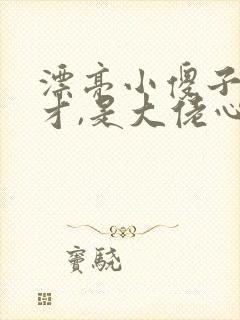 漂亮小傻子
才,是大佬心
窦骁